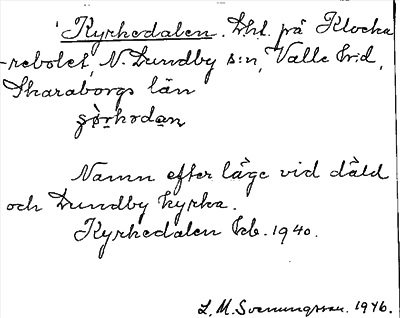 'Kyrkedalen. Lht. på Klocka-
rebolet', N. Lundby s:n, Valle hd,
Skaraborgs län
Namn efter läge vid däld
och Lundby kyrka.
Kyrkedalen kb. 1940.
L. M. Svenungsson. 1946.